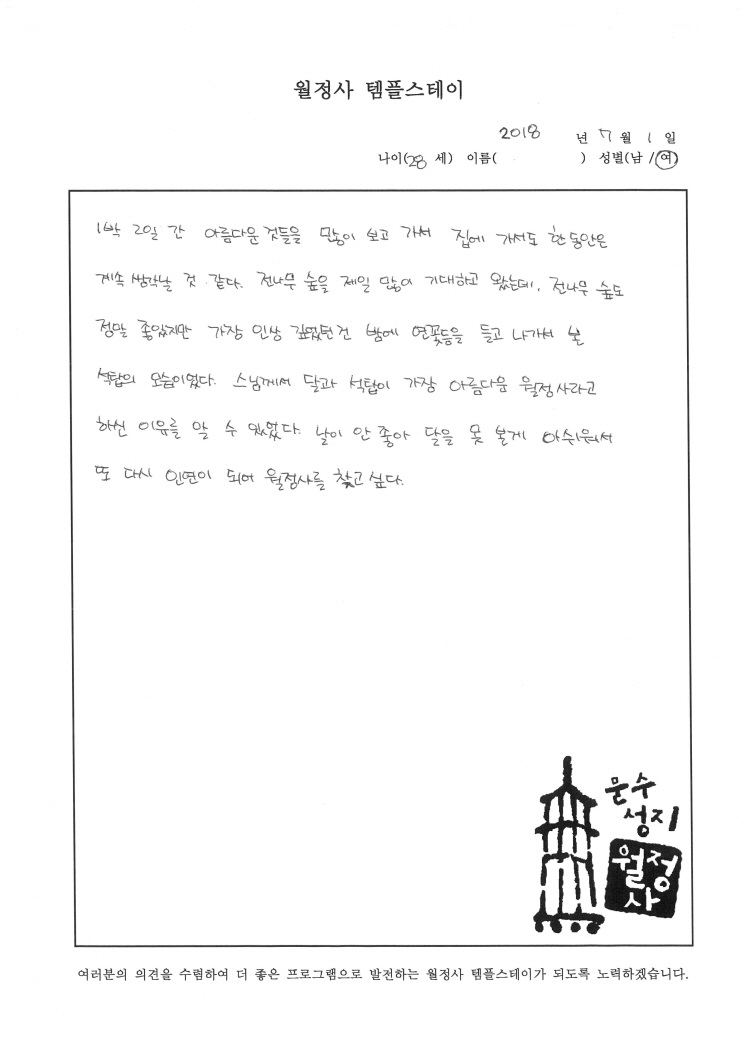 월정사 템플스테이
2018 년 7 월 1 일
나이(28 세) 이름( ) 성별(남 /여)
1박 2일 간 아름다운 것들을 많이 보고 가서 집에 가서도 한동안은
계속 생각날 것 같다. 전나무 숲을 제일 많이 기대하고 왔는데, 전나무 숲도
정말 좋았지만 가장 인상 깊었던건 밤에 연꽃등을 들고 나가서 본
석탑의 모습이었다. 스님께서 달과 석탑이 가장 아름다운 월정사라고
하신 이유를 알 수 있었다. 날이 안 좋아 달을 못 본게 아쉬워서
또 다시 인연이 되어 월정사를 찾고 싶다.
문수
성지
월정
사
여러분의 의견을 수렴하여 더 좋은 프로그램으로 발전하는 월정사 템플스테이가 되도록 노력하겠습니다.